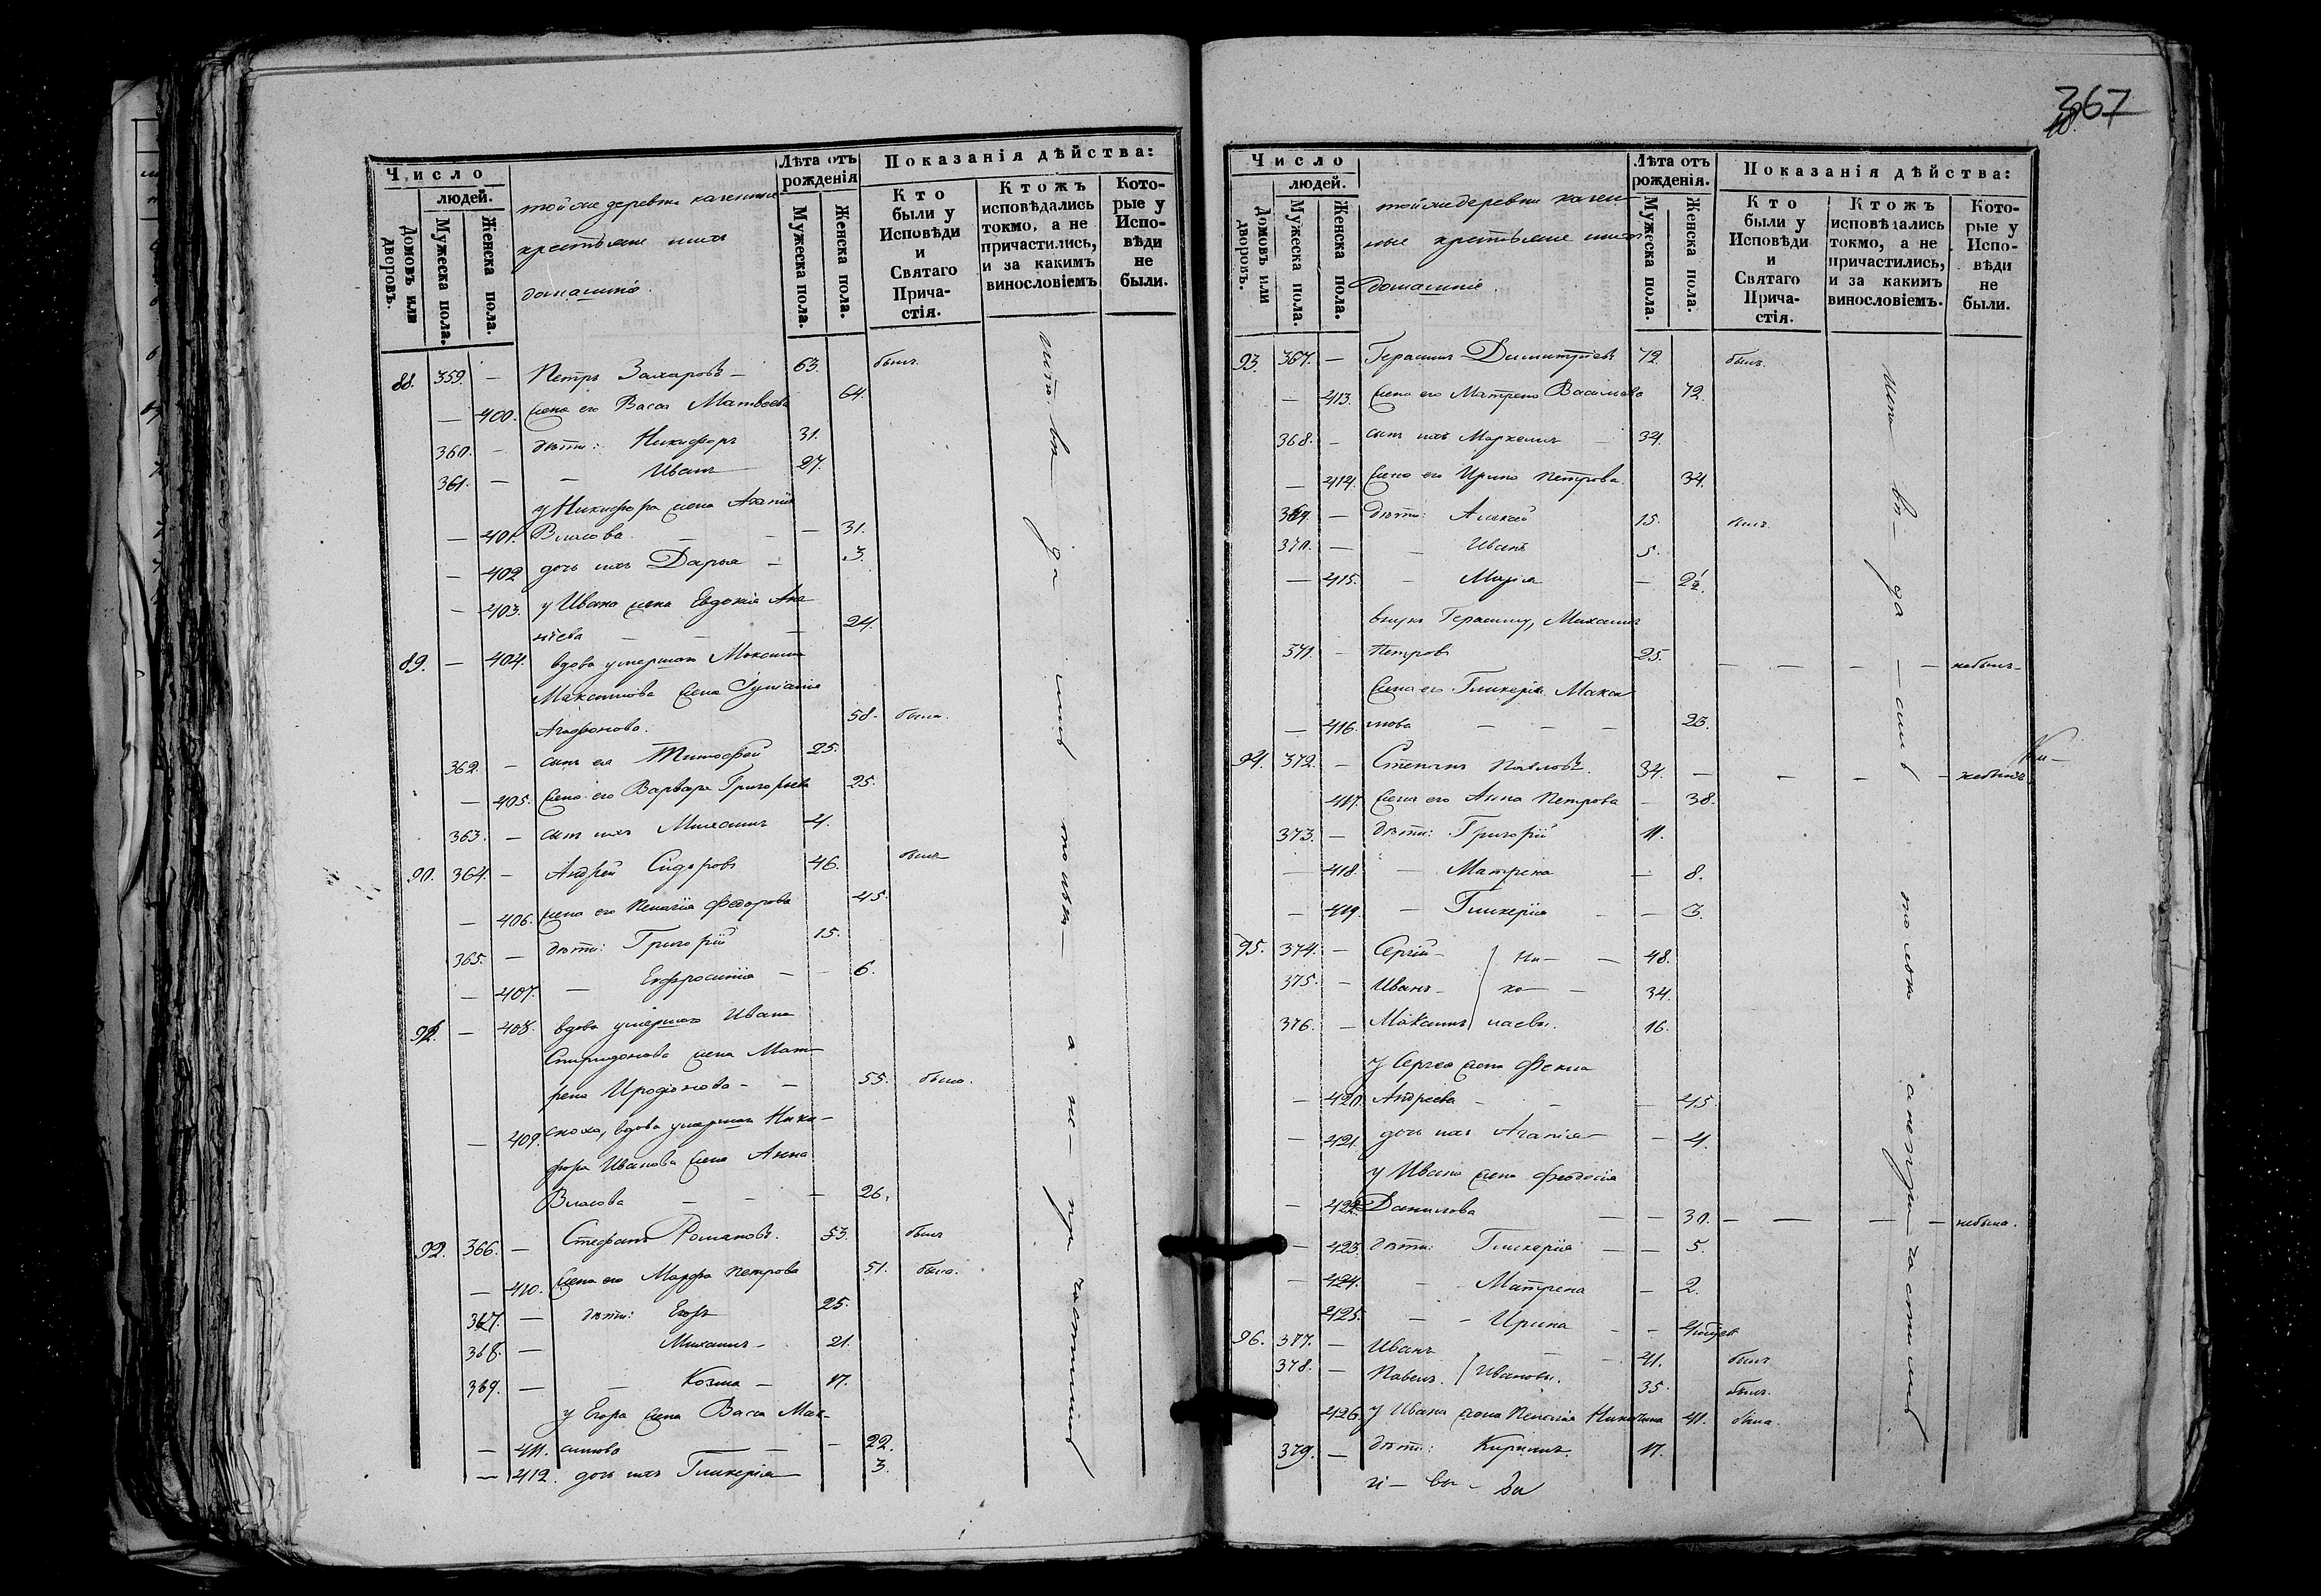 367
10.
Число
людей.
Домовъ или дворовъ.
Мужеска пола.
Женска пола.
тойже деревни казенные
крестьяне ихъ
домашніе.
Лѣта отъ
рожденія
Мужеска пола.
Женска пола.
Показанія дѣйства:
Кто
были у
Исповѣди
и
Святаго
Прича-
стія.
Ктожъ
исповѣдались
токмо, а не
причастились,
и за какимъ
винословіемъ
Кото-
рые у
Испо-
вѣди
не
были.
88. 359. — Петръ Захаровъ — 63. былъ.
— 400. жена его Васса Матвеева 64.
360. — дѣти: Никифоръ 31.
361. — — Иванъ 27.
у Никифора жена Агапія
— 401. Власова. — — — 31.
— 402 дочь ихъ Дарья — 3.
— 403. у Ивана жена Евдокія Ана
ньева — — — 24.
89. — 404. вдова умершаго Максима
Максимова жена Іуліанія
Агафонова. 58. была.
362. — сынъ ея Тимофей 25.
— 405. жена его Варвара Григорьева 25.
363. — сынъ ихъ Михаилъ 4.
90. 364. — Андрей Сидоровъ 46. былъ
— 406. жена его Пелагія Федорова 45.
365. — дѣти: Григорій 15.
— 407. — Евфросинія — — 6.
91. — 408. вдова умершаго Ивана
Спиридонова жена Мат
рена Иродіонова — — 55. была.
— 409. сноха, вдова умершаго Ники-
фора Иванова жена Анна
Власова — — — 26.
92. 366. — Стефанъ Романовъ. 53. былъ
— 410. жена его Марфа Петрова 51. была.
367. — дѣти: Егоръ 25.
368. — Михаилъ — 21.
369. — — Козма — 17.
у Егора жена Васса Мак-
— 411. симова — — 22.
— 412. дочь ихъ Гликерія — 3.
Число
людей.
Домовъ или дворовъ.
Мужеска пола.
Женска пола.
тойже деревни казен
ные крестьяне ихъ
домашніе.
Лѣта отъ
рожденія.
Мужеска пола.
Женска пола.
Показанія дѣйства:
Кто
были у
Исповѣди
и
Святаго
Прича-
стія.
Ктожъ
исповѣдались
токмо, а не
причастились,
и за какимъ
винословіемъ.
Кото-
рые у
Испо-
вѣди
не
были.
93. 367. — Герасимъ Димитріевъ 72. былъ.
— 413. жена его Матрена Васильева 72.
368. — сынъ ихъ Маркелъ — 34.
— 414. жена его Ирина Петрова. 34.
369. — дѣти: Алексей 15. былъ.
370. — — Иванъ 5.
— 415. — Марія — 2½.
внукъ Герасиму, Михаилъ
371. — Петровъ 25. — — — — небылъ —
жена его Гликерія Макси
— 416. мова — — — 23.
94. 372. — Степанъ Павловъ. 34. — — — — небылъ
417. жена его Анна Петрова — 38.
373. — дѣти: Григорій 11.
— 418. — Матрена — 8.
— 419. — Гликерія — — 3.
95. 374. — Сергій — Ни — — 48.
375. — Иванъ — ко — — 34.
376. — Максимъ лаевы. 16.
у Сергея жена Фекла
— 420. Андреева — — — 45.
— 421. дочь ихъ Агапія — — 4.
у Ивана жена Феодосія
— 422. Данилова — — 30. — — — — небыла.
— 423. дѣти: Гликерія — — 5.
— 424. — Матрена — 2.
425. — — Ирина — —
96. 377. — Иванъ — — 41. былъ
378. — Павелъ. Ивановы. 35. былъ.
426. у Ивана жена Пелагія Никитина 41. была.
379. — дѣти: Кирилъ. 17.